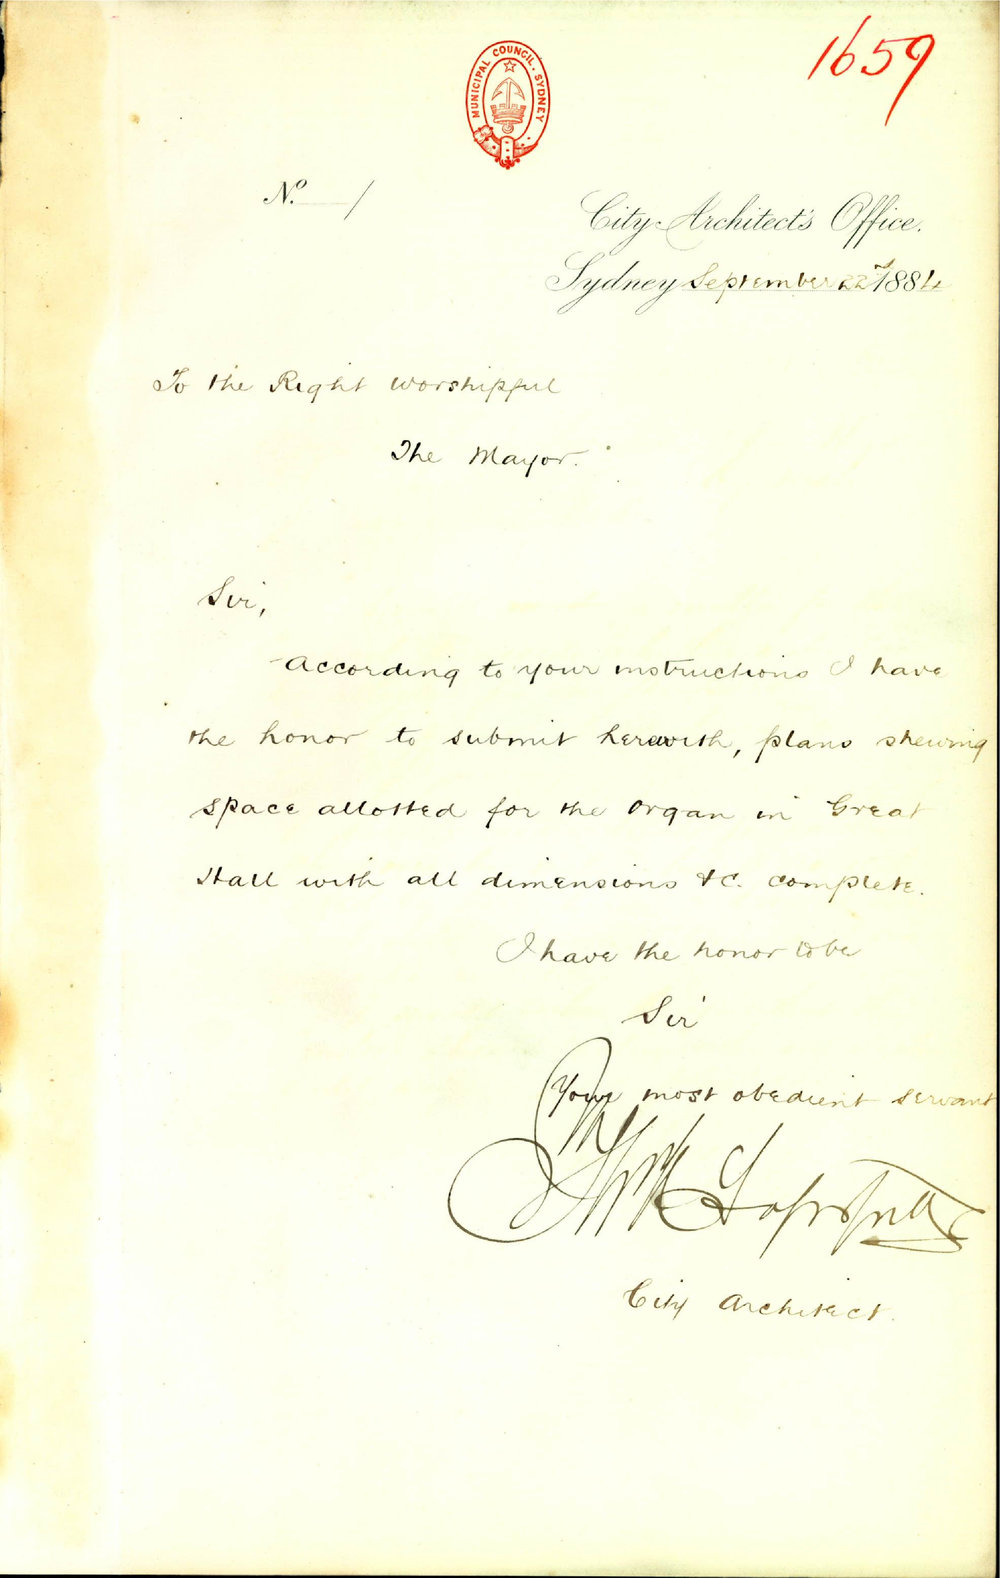 1659
MUNICIPAL COUNCIL. SYDNEY
No. /
City Architect's Office.
Sydney September 22nd 1884
To the Right Worshipful
The Mayor.
Sir,
According to your instructions I have
the honor to submit herewith, plans shewing
space allotted for the Organ in Great
Hall with all dimensions &c. complete.
I have the honor to be
Sir
Your most obedient servant
City Architect.